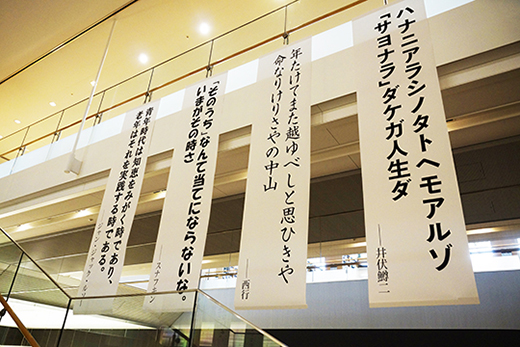 ハナニアラシノタトヘモアルゾ
「サヨナラ」ダケガ人生ダ
——井伏鱒二
年たけてまた越ゆべしと思ひきや
命なりけりさやの中山
——西行
「そのうち」なんて当てにならないな。
いまがその時さ
——スナフキン
青年時代は知恵をみがく時であり、
老年はそれを実践する時である。
——ジャン=ジャック・ルソー